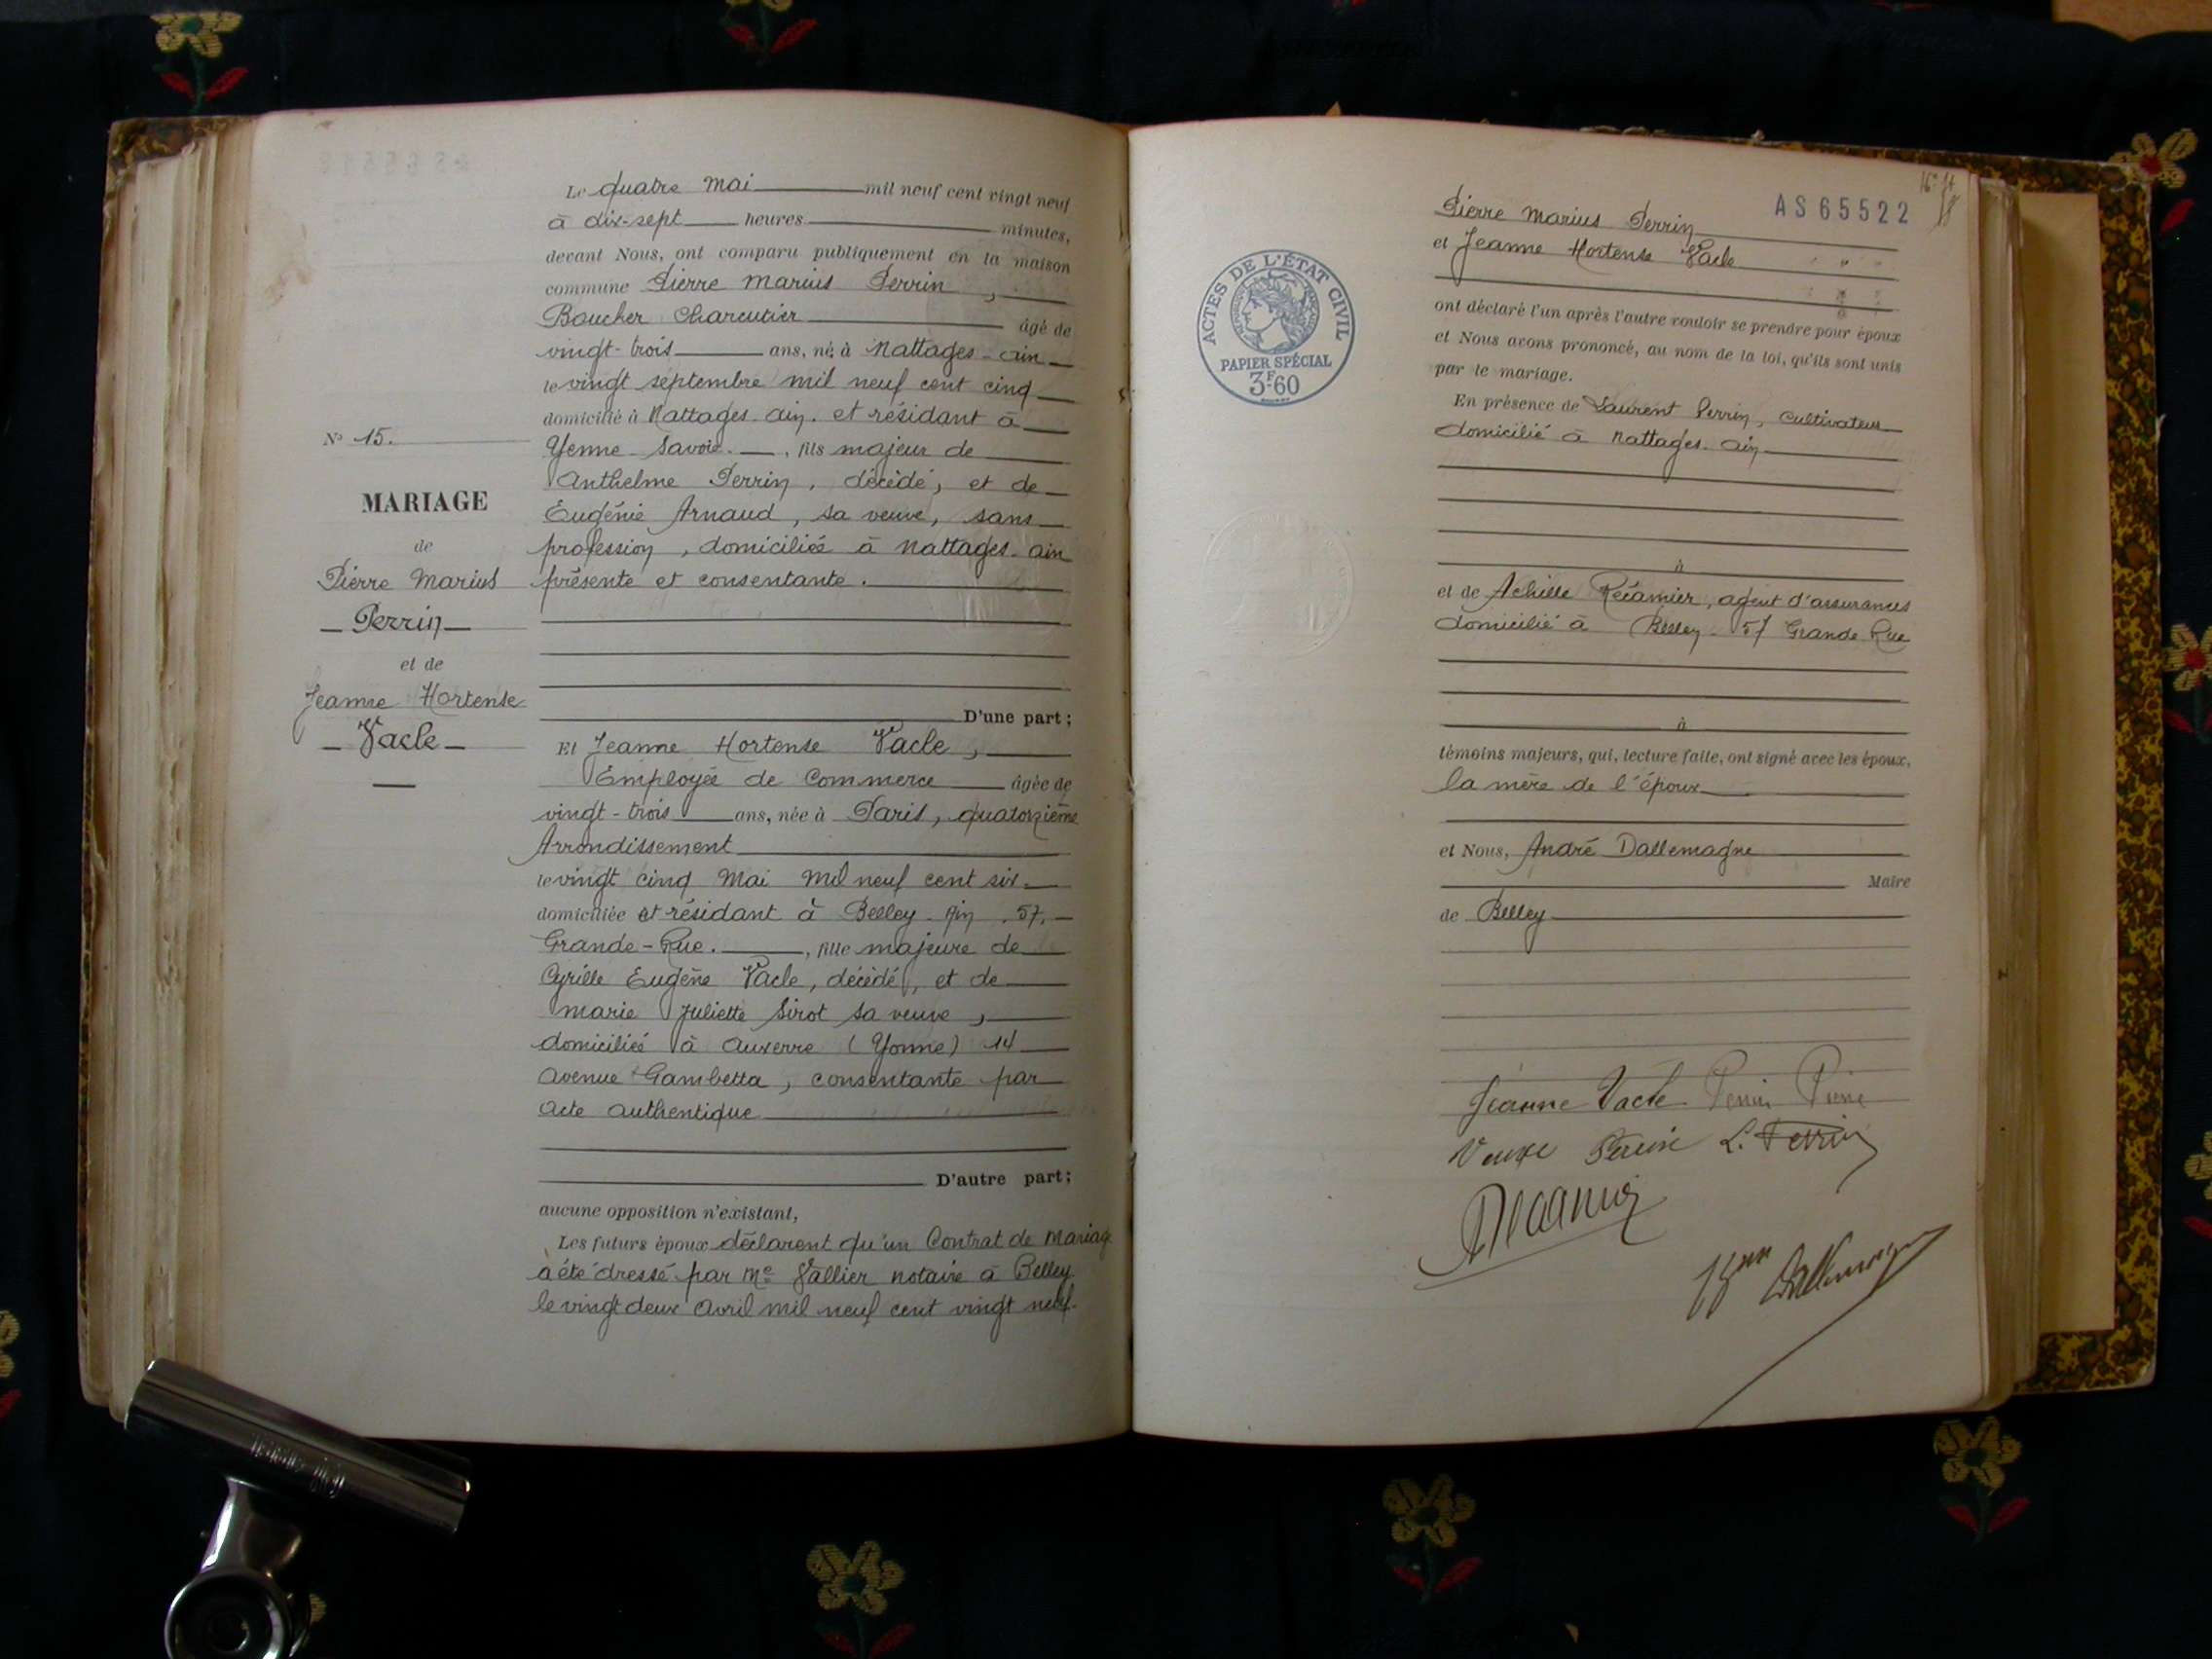 N° 15.
MARIAGE
de
Pierre Marius
Perrin
et de
Jeanne Hortense
Vacle
Le quatre Mai mil neuf cent vingt neuf
à dix-sept heures minutes,
devant Nous, ont comparu publiquement en la maison
commune Pierre Marius Perrin,
Boucher Charcutier âgé de
vingt-trois ans, né à Nattages - ain
le vingt septembre mil neuf cent cinq
domicilié à Nattages. ain. et résidant à
Yenne - Savoie. , fils majeur de
Anthelme Perrin, décédé, et de
Eugénie Arnaud, sa veuve, sans
profession, domiciliée à Nattages - ain
présente et consentante.
D'une part ;
Et Jeanne Hortense Vacle,
Employée de Commerce âgée de
vingt-trois ans, née à Paris, quatorzième
Arrondissement
le vingt cinq Mai Mil neuf cent six.
domiciliée et résidant à Belley - Ain . 57,
Grande-Rue. , fille majeure de
Cyrille Eugène Vacle, décédé, et de
Marie Juliette Sirot sa veuve,
domiciliée à Auxerre (Yonne) 14
Avenue Gambetta, consentante par
Acte Authentique
D'autre part ;
aucune opposition n'existant,
Les futurs époux déclarent qu'un Contrat de Mariage
a été dressé par Me Vallier notaire à Belley
le vingt deux Avril mil neuf cent vingt neuf.
AS 65522
ACTES DE L'ÉTAT CIVIL
PAPIER SPÉCIAL
3F60
Pierre Marius Perrin
et Jeanne Hortense Vacle
ont déclaré l'un après l'autre vouloir se prendre pour époux
et Nous avons prononcé, au nom de la loi, qu'ils sont unis
par le mariage.
En présence de Laurent Perrin, cultivateur
domicilié à Nattages. ain
à
et de Achille Récamier, agent d'assurances
domicilié à Belley - 57 Grande Rue
à
témoins majeurs, qui, lecture faite, ont signé avec les époux,
la mère de l'époux
et Nous, André Dallemagne
Maire
de Belley
Jeanne Vacle Perrin Pierre
Veuve Perrin L. Perrin
Récamier
Dallemagne